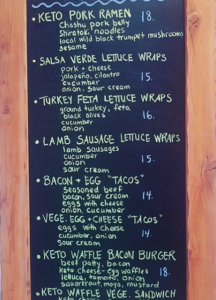 • KETO PORK RAMEN 18.
Chashu pork belly
Shirataki noodles
local wild black trumpet mushrooms
sesame
• SALSA VERDE LETTUCE WRAPS
pork + cheese
jalapeño, cilantro 15.
cucumber
onion, sour cream
• TURKEY FETA LETTUCE WRAPS
ground turkey, feta
black olives 16.
cucumber
onion
• LAMB SAUSAGE LETTUCE WRAPS
lamb sausages
cucumber 15.
onion
sour cream
• BACON + EGG "TACOS"
Seasoned beef
bacon, sour cream 14.
eggs with cheese
onion, cucumber
• VEGE. EGG + CHEESE "TACOS"
eggs with cheese
cucumber, onion 14.
sour cream
• KETO WAFFLE BACON BURGER
beef patty, bacon
keto cheese-egg waffles 18.
lettuce, tomato, onion
sauerkraut, mayo, mustard
• KETO WAFFLE VEGE. SANDWICH
keto cheese